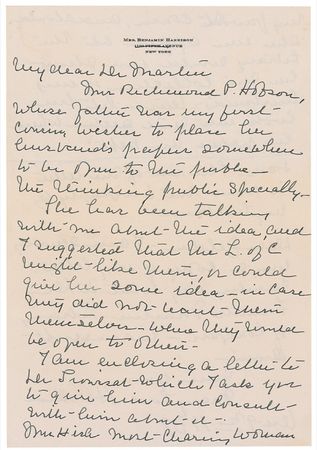 MRS. BENJAMIN HARRISON
FIFTH AVENUE
NEW YORK
My dear Dr Martin
Mrs Richmond P. Hobson,
whose father was my first
cousin, wishes to place her
husband's papers somewhere
to be open to the public –
the thinking public specially –
She has been talking
with me about the idea, and
I suggested that the L. of C
might like them, or could
give her some idea – in case
they did not want them
themselves – where they would
be open to others –
I am enclosing a letter to
Dr which I ask you
to give him and consult
with him about it –
Mrs H is a most charming woman